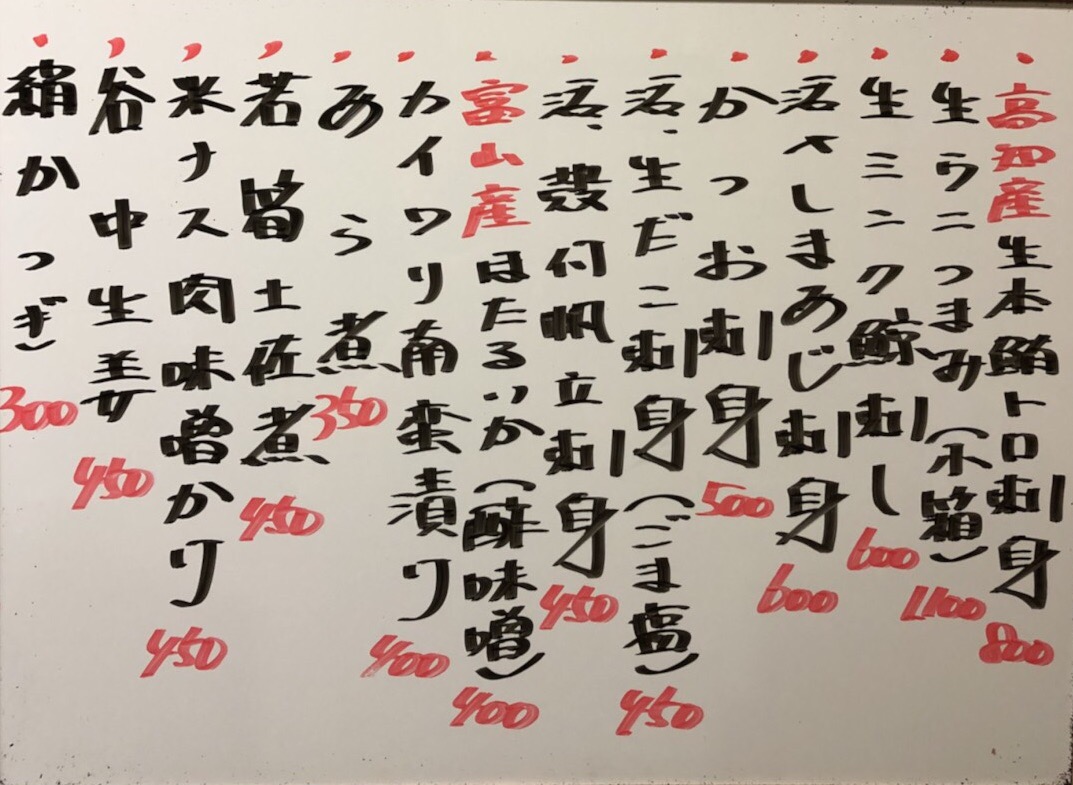 高知産生本鮪トロ刺身 800
生ウニつまみ(小箱) 1,100
生ミンク鯨刺し 600
活〆しまあじ刺身 600
かつお刺身 500
活、生だこ刺身(ごま塩) 450
活、殻付帆立刺身 450
富山産ほたるいか(酢味噌) 400
カイワリ南蛮漬り 400
あら煮 350
若筍土佐煮 450
米ナス肉味噌かり 450
谷中生姜 450
絹かつぎ 300